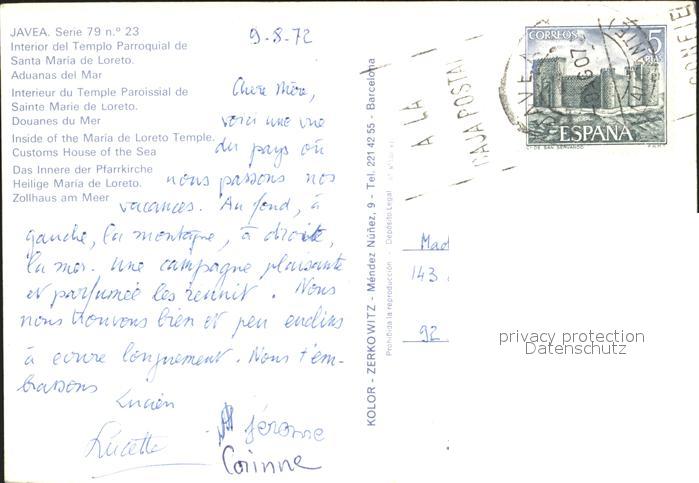 JAVEA. Serie 79 n.º 23
Interior del Templo Parroquial de
Santa María de Loreto.
Aduanas del Mar
Interieur du Temple Paroissial de
Sainte Marie de Loreto.
Douanes du Mer
Inside of the María de Loreto Temple.
Customs House of the Sea
Das Innere der Pfarrkirche
Heilige María de Loreto.
Zollhaus am Meer
9-8-72
Chère Mère,
voici une vue
du pays où
nous passons nos
vacances. Au fond, à
gauche, la montagne, à droite,
la mer. une campagne plaisante
et parfumée les réunit. Nous
nous trouvons bien et peu enclins
à écrire longuement. Nous t'em-
brassons
Lucien
Lucette
Jérome
Corinne
KOLOR - ZERKOWITZ - Méndez Núñez, 9 - Tel. 221 42 55 - Barcelona
Prohibida la reproducción - Depósito Legal
A LA
CAJA POSTAL
CORREOS
5
PTAS
ESPAÑA
Cº DE SAN SERVANDO
F.N.M.T.
Mad
143
92
privacy protection
Datenschutz